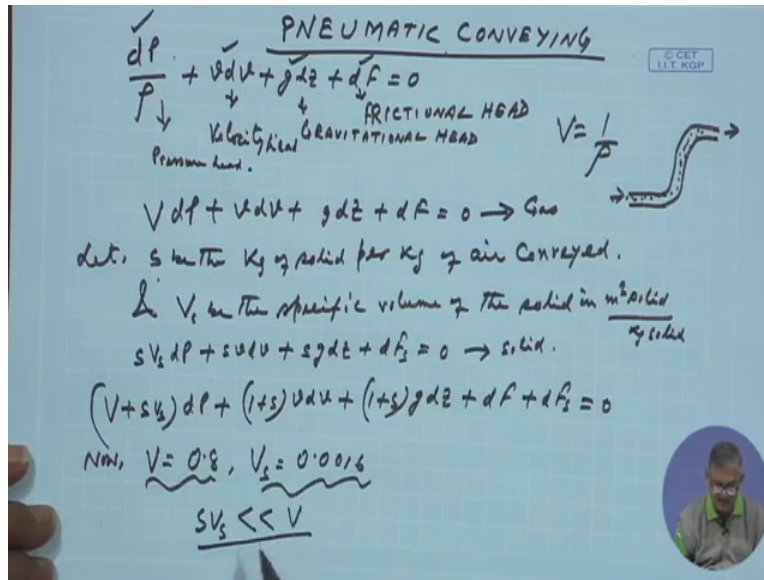 PNEUMATIC CONVEYING
© CET
I.I.T. KGP
dP/ρ + vdv + gdz + dF = 0
FRICTIONAL HEAD
Velocity head GRAVITATIONAL HEAD
Pressure head.
V = 1/ρ
VdP + vdv + gdz + dF = 0 → Gas
Let, S be the Kg of solid per Kg of air Conveyed.
& Vs be the specific volume of the solid in m³ solid/Kg solid
SVs dP + SVdv + Sgdz + dFs = 0 → Solid.
(V+SVs) dP + (1+S) vdv + (1+S) gdz + dF + dFs = 0
Now, V = 0.8, Vs = 0.0016
SVs << V